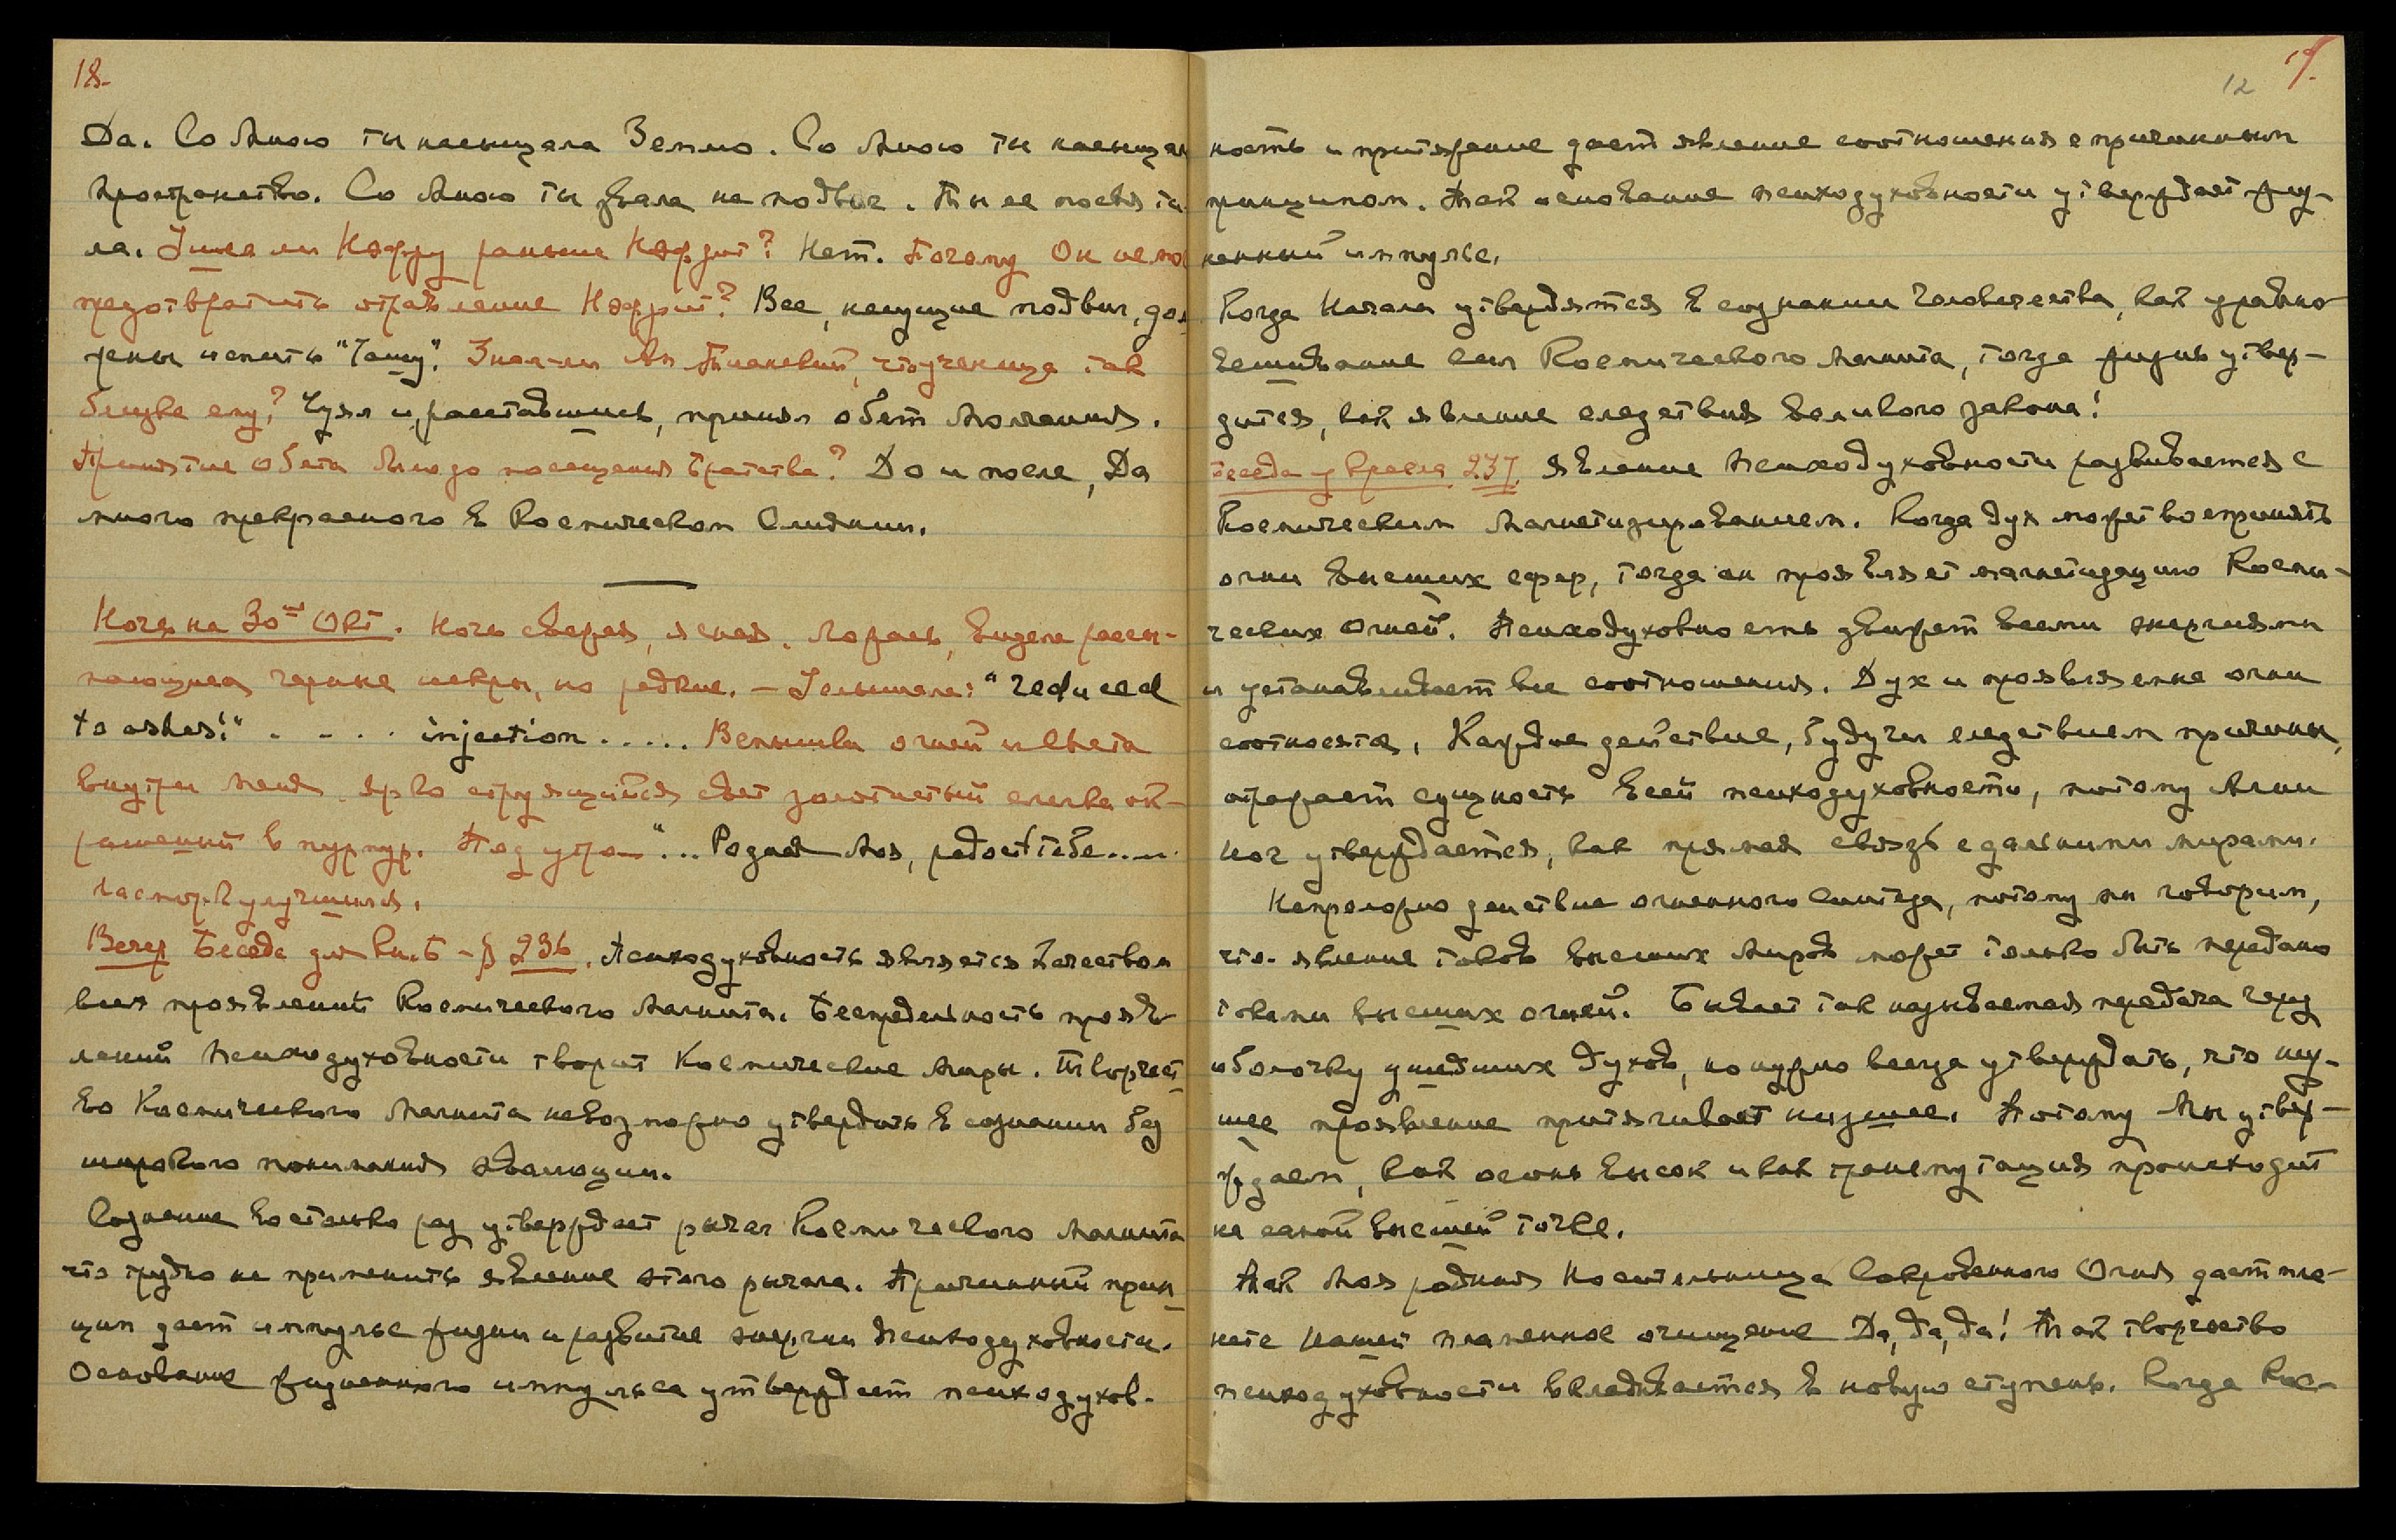 18.
Да. Со Мною ты насыщала Землю. Со Мною ты насыщал
пространство. Со Мною ты звала на подвиг. Ты ее посвяти-
ла. Знала ли Нефру раньше Нефрит? Нет. Почему Он не мо
предотвратить отравление Нефрит? Все, несущие подвиг, дол
жны испить "Чашу". Знал-ли Ап. Тианский, что ученица так
близка ему? Чуял и, расставшись, принял обет молчания.
Принятие обета было до посещения Братства? До и после, Да
много прекрасного в Космическом Слиянии.
Ночь на 30ое Окт. Ночь свежая, ясная. Ложась, видела рассы-
пающиеся черные искры, но редкие. – Услышала: "reduced
to ashes!" . - . . . injection . . . . . Вспышки огней и света
внутри меня. Ярко струящийся свет золотистый слегка ок-
рашенный в пурпур. Под утро – "... Родная Моя, радость тебе....."

Вечер Беседа до § 236. Психодуховность является качеством
всех проявлений Космического Магнита. Беспредельность прояв-
лений психодуховности творит Космические Миры. Творчест-
во Космического Магнита невозможно утвердить в сознании без
широкого понимания эволюции.
Сознание настолько раз утверждает рычаг Космического Магнита
что трудно не применить явление этого рычага. Причинный прин-
цип дает импульс жизни и развитие энергии психодуховности.
Основание жизненного импульса утверждает психодухов-
12 19.
ность и притяжение дает явление соотношения с причинным
принципом. Так основание психодуховности утверждает жиз-
ненный импульс.
Когда Начала утвердятся в сознании человечества, как уравно-
вешивание сил Космического Магнита, тогда жизнь утвер-
дится, как явление следствия великого закона!
Беседа у кресла 237. Явление психодуховности развивается с
Космическим Магнетизированием. Когда дух может воспринять
огни высших сфер, тогда он проявляет магнетизацию Косми-
ческих Огней. Психодуховность движет всеми энергиями
и устанавливает все соотношения. Дух и проявленные огни
соотносятся. Каждое действие, будучи следствием причины,
отражает сущность всей психодуховности, потому Агни
Йог утверждается, как прямая связь с дальними мирами.
Непреложно действие огненного синтеза, потому мы говорим,
что явление токов высших миров может только быть передано
токами высших огней. Бывает так называемая передача через
оболочку ушедших духов, но нужно всегда утверждать, что низ-
шее проявление притягивает низшее. Потому Мы утвер-
ждаем, как огонь высок и как трансмутация происходит
на самой высшей точке.
Так Моя родная Носительница Сокровенного Огня дает пла-
нете нашей пламенное очищение. Да, да, да! Так творчество
психодуховности вкладывается в новую ступень. Когда Кос-